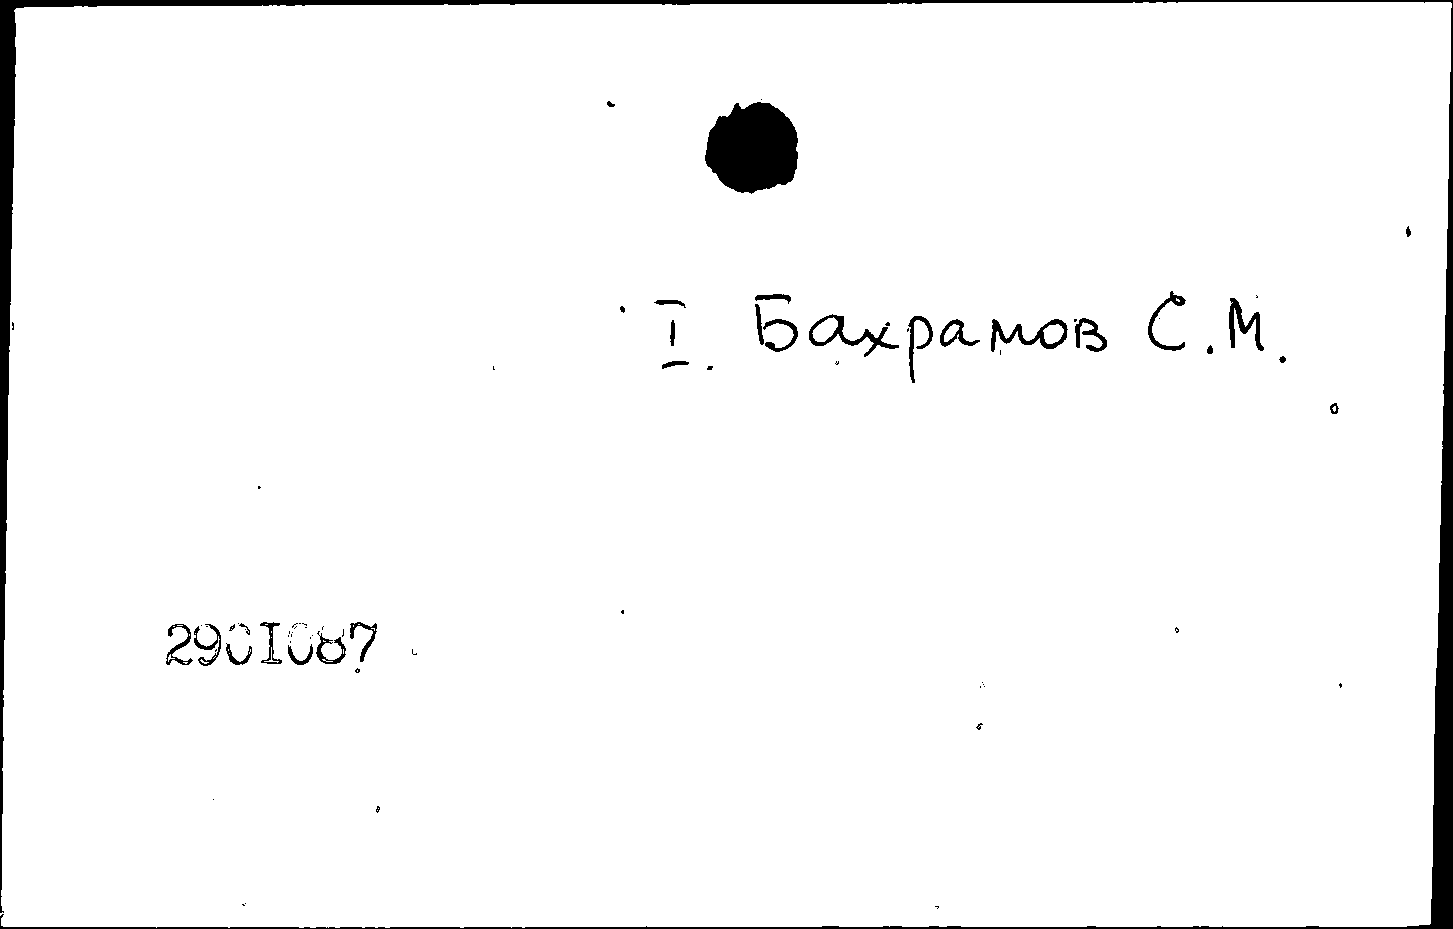 I. Бахрамов С.М.
290I087